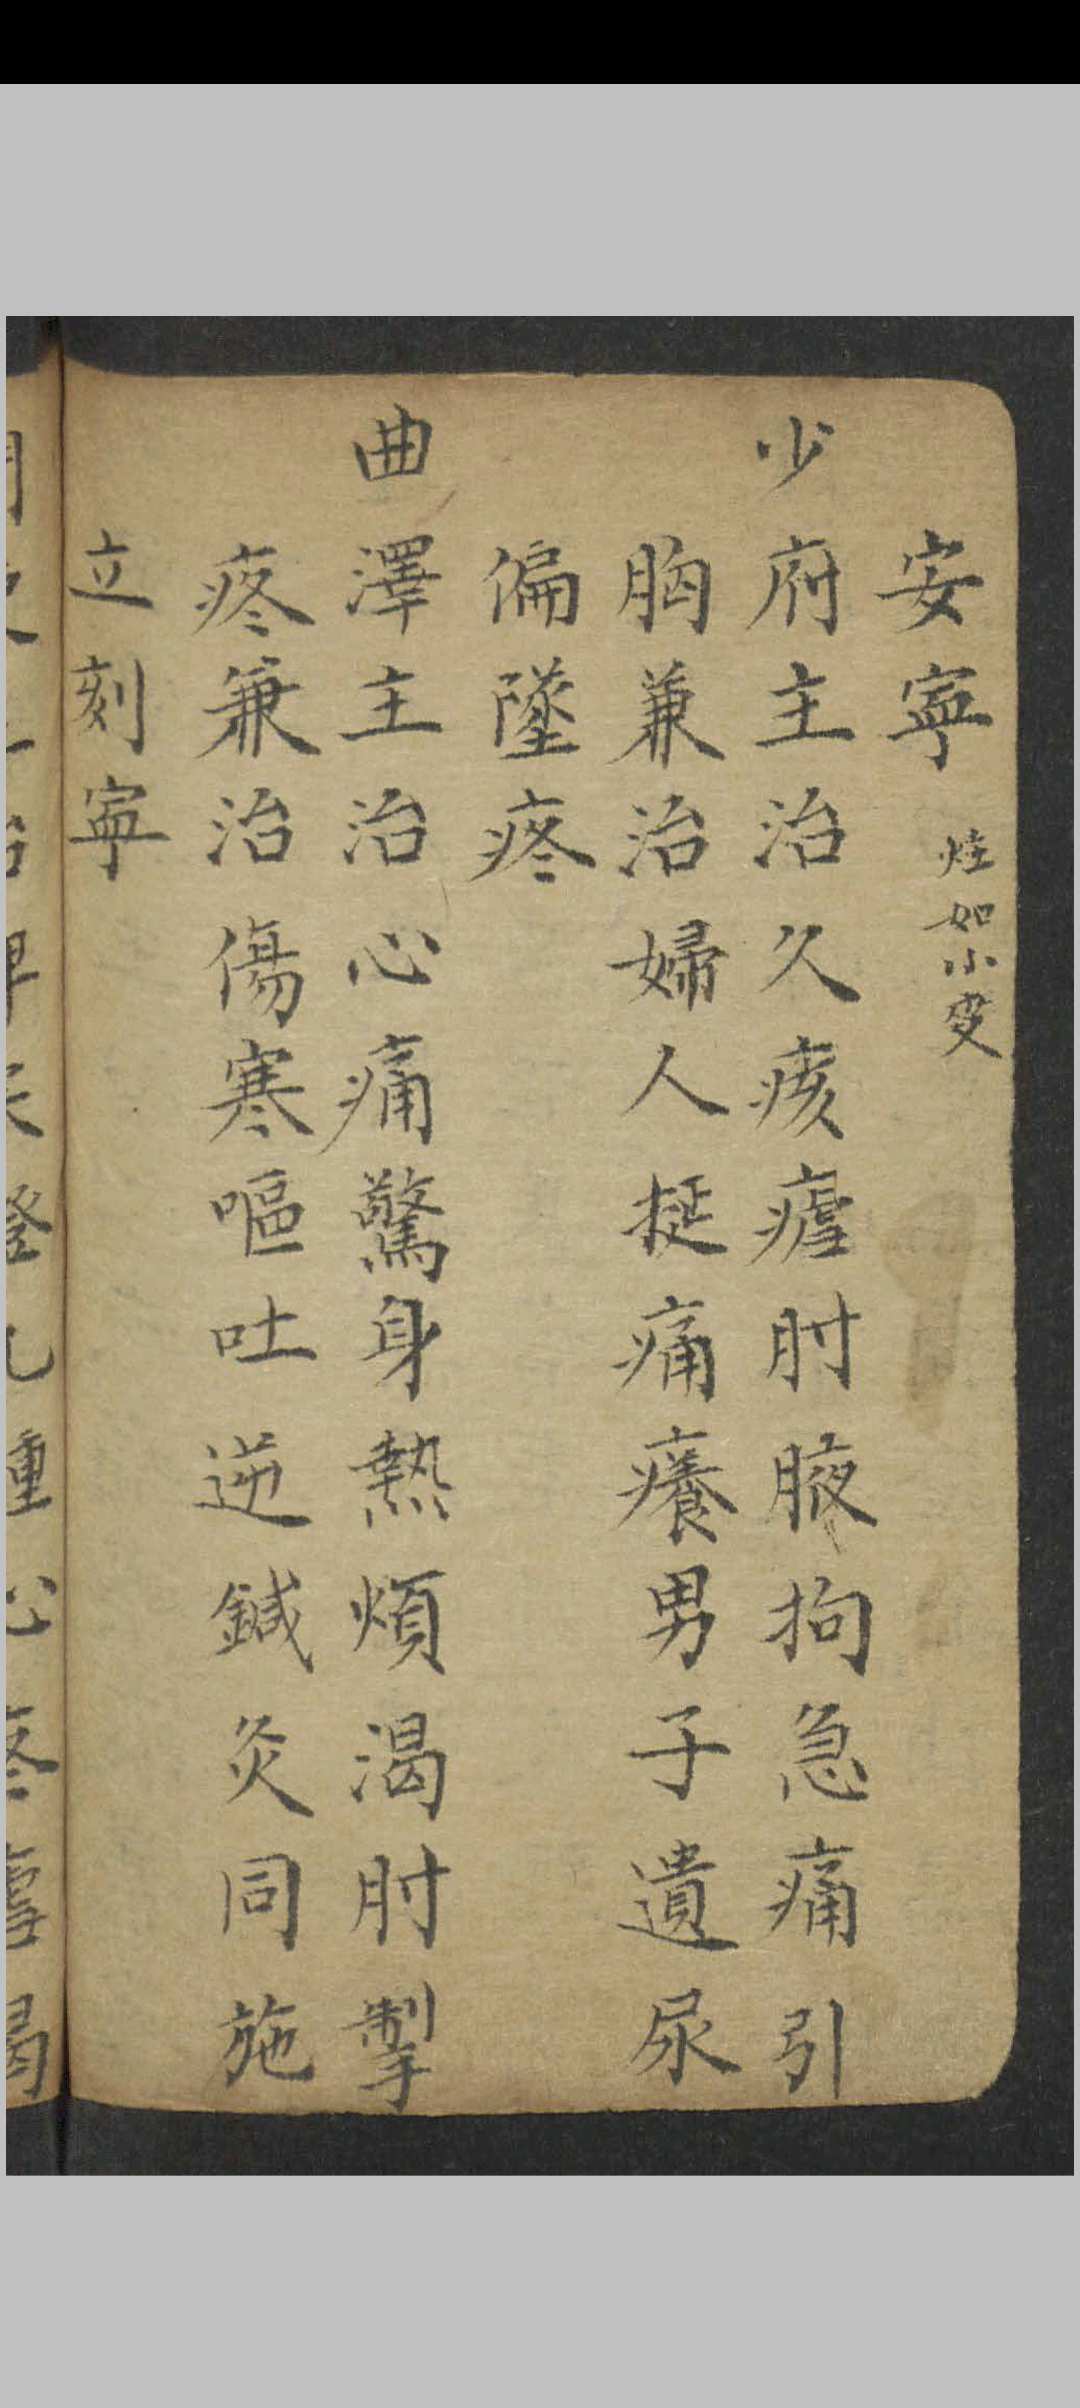 安寧 炷如小麥
少府主治久痎瘧肘腋拘急痛引
胸兼治婦人挺痛癢男子遺尿
偏墜疼
曲澤主治心痛驚身熱煩渴肘掣
疼兼治傷寒嘔吐逆鍼灸同施
立刻寧